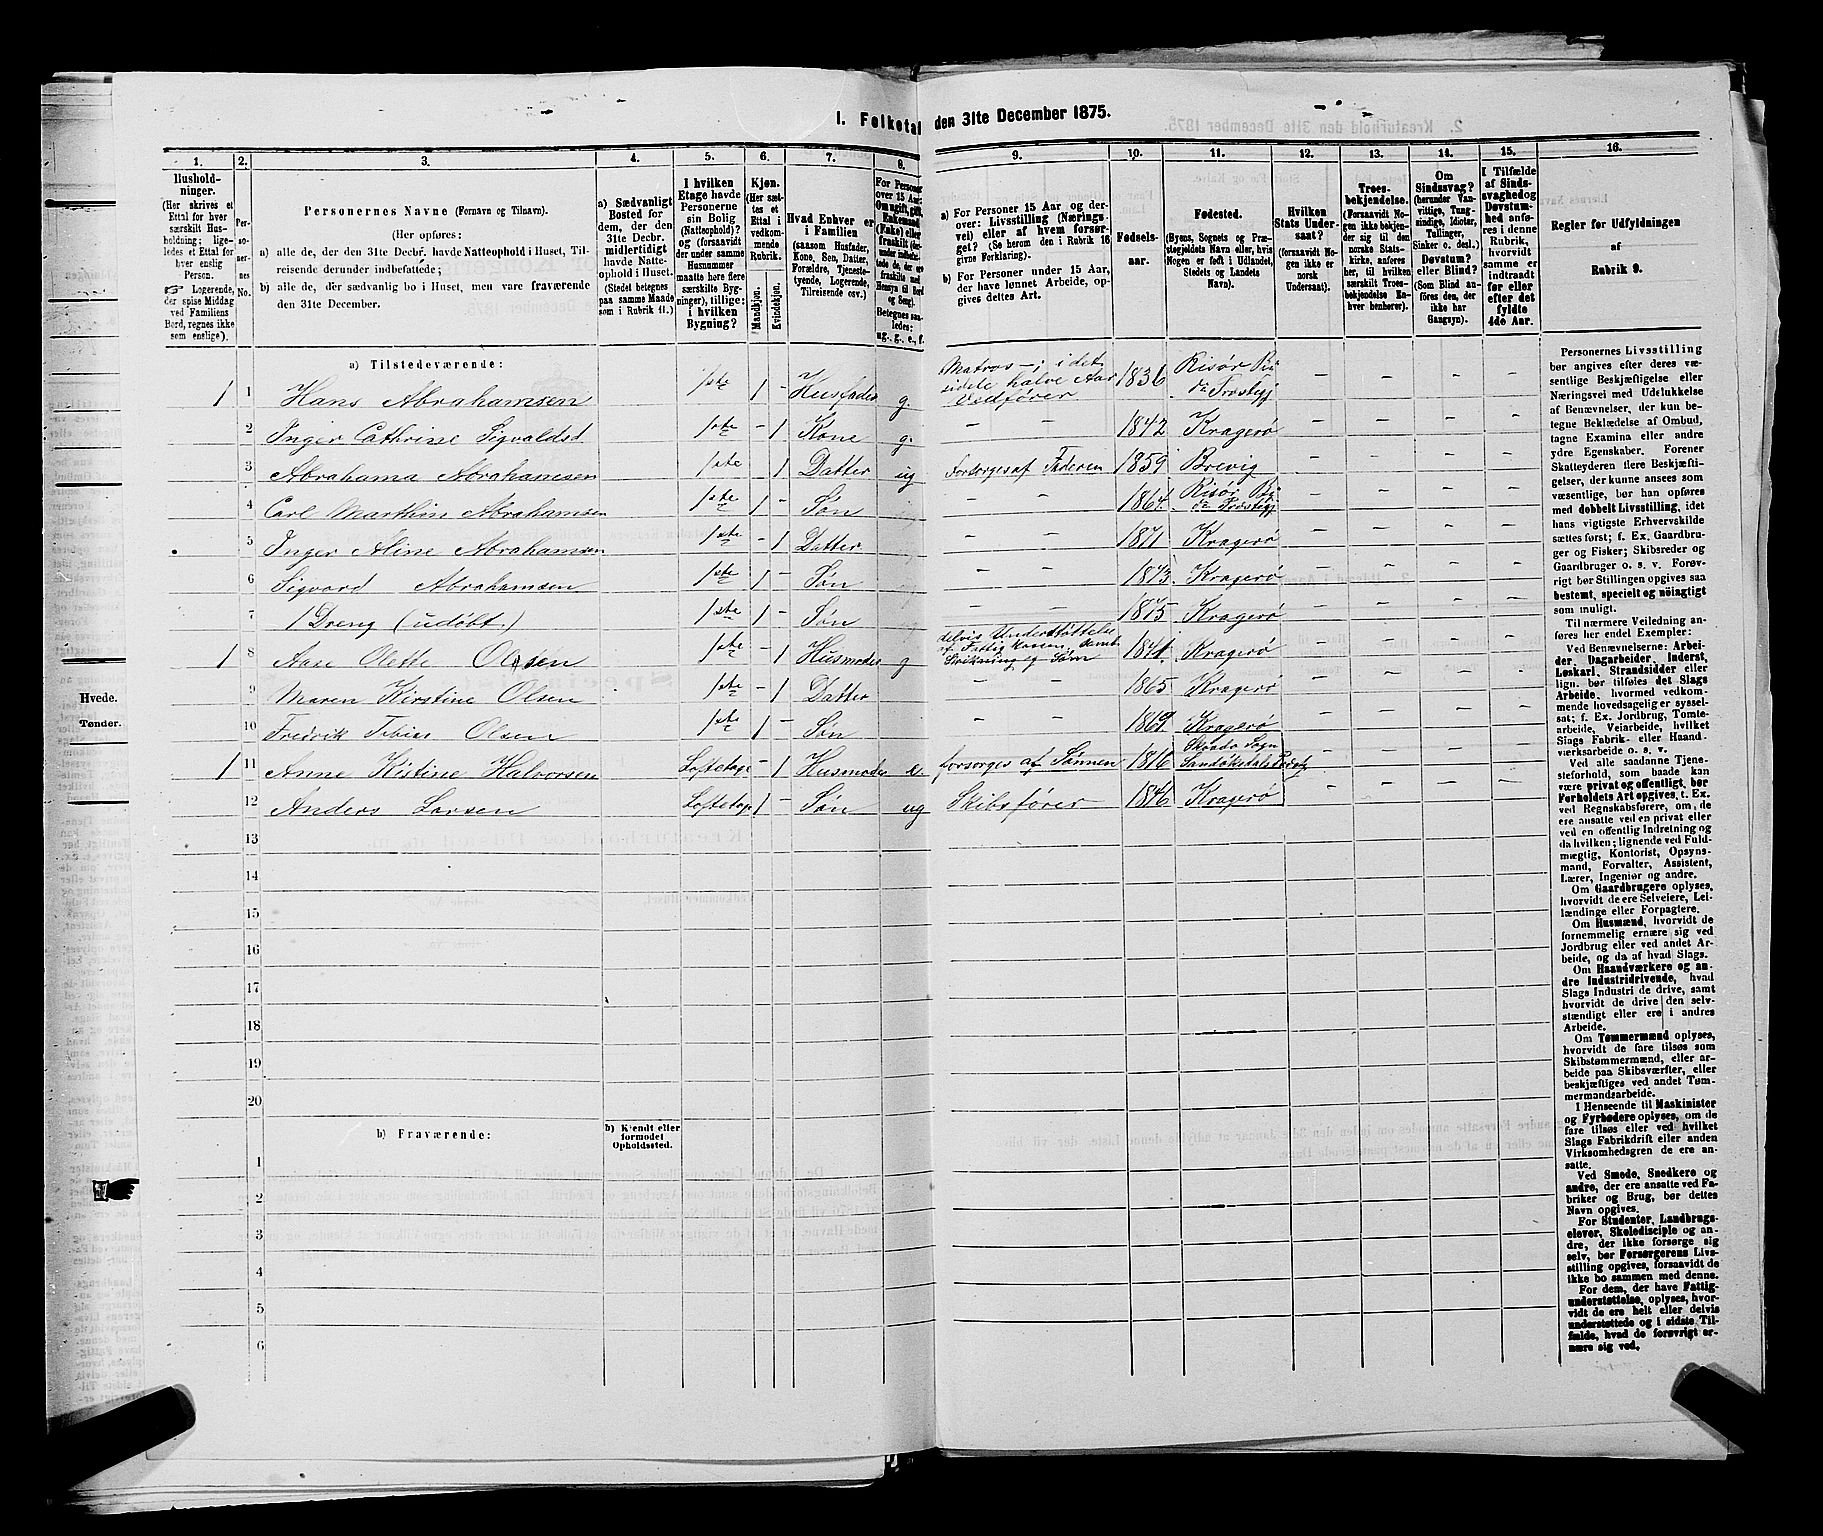 I. Folketal den 31te December 1875.
1. 2. 3. 4. 5. 6. 7. 8. 9. 10. 11. 12. 13. 14. 15. 16.
Hushold-
ninger.
(Her skrives et
Ettal for hver
særskilt Hus-
holdning; lige-
ledes et Ettal for
hver enslig
Person.
☞ Logerende,
der spise Middag
ved Familiens
Bord, regnes ikke
som enslige).
Per-
so-
ner-
nes
No.
Personernes Navne (Fornavn og Tilnavn).
(Her opføres:
a) alle de, der den 31te Decbr. havde Natteophold i Huset, Til-
reisende derunder indbefattede;
b) alle de, der sædvanlig bo i Huset, men vare fraværende
den 31te December.
a) Sædvanligt
Bosted for
dem, der den
31te Decbr.
midlertidigt
havde Natte-
ophold i Huset.
(Stedet betegnes
paa samme Maade
som i Rubrik 11.)
I hvilken
Etage havde
Personerne
sin Bolig
(Natteophold)?
og (forsaavidt
der under samme
Husnummer
maatte høre flere
særskilte Byg-
ninger), tillige:
i hvilken
Bygning?
Kjøn.
(Her sæt-
tes et
Ettal i
vedkom-
mende
Rubrik.
Mandkjøn.
Kvindekjøn.
Hvad Enhver er
i Familien
(saasom Husfader,
Kone, Søn, Datter,
Forældre, Tjeneste-
tyende, Logerende,
Tilreisende osv.)
For Personer
over 15 Aar:
Om ugift, gift,
Enkemand
(Enke) eller
fraskilt
Betegnes saa-
ledes:
ug., g., e., f.
a) For Personer 15 Aar og der-
over: Livsstilling (Nærings-
vei) eller af hvem forsør-
get? (Se herom den i Rubrik 16
givne Forklaring).
b) For Personer under 15 Aar,
der have lønnet Arbeide, op-
gives dettes Art.
Fødsels-
aar.
Fødested.
(Byens, Sognets og Præ-
stegjeldets Navn eller, hvis
Nogen er født i Udlandet,
Stedets og Landets
Navn).
Hvilken
Stats Under-
saat?
(forsaavidt No-
gen ikke er
norsk
Undersaat).
Troes-
bekjendelse.
(Forsaavidt No-
gen ikke bekjen-
der sig til den
norske Stats-
kirke, anføres
her, til hvilken
særskilt Troes-
bekjendelse En-
hver henhører).
Om
Sindssvag?
(herunder Van-
vittige, Tung-
sindige, Idioter,
Tullinger,
Sinker o. desl.)
Døvstum?
eller Blind?
(Som Blind an-
føres den, der
ikke har
Gangsyn).
I Tilfælde
af Sinds-
svaghed og
Døvstum-
hed anfø-
res i denne
Rubrik,
hvorvidt
samme er
indtraadt
før eller
efter det
fyldte
4de Aar.
Regler for Udfyldningen
af
Rubrik 9.
a) Tilstedeværende:
1 1 Hans Abrahamsen 1ste 1 - Husfader g. Matros – i det sidste halve Aar Vedfører 1836 Risør
2 Inger Cathrine Sigvaldsd 1ste - 1 Kone g. - - 1842 Kragerø
3 Abrahama Abrahamsen 1ste - 1 Datter ug Forsørges af Faderen 1859 Brevig
4 Carl Marthin Abrahamsen 1ste 1 - Søn - - 1864. Risør
5 Inger Aline Abrahamsen 1ste - 1 Datter - - 1871 Kragerø
6 Sigvard Abrahamsen 1ste 1 - Søn - - 1873. Kragerø
7 1 Dreng (udøbt.) 1ste 1 - Søn - - 1875 Kragerø
1 8 Aase Olette Olsen 1ste - 1 Husmoder g delvis Understøttelse af Fattig Kassen, samt Strikning og Søm 1841. Kragerø
9 Maren Kirstine Olsen 1ste - 1 Datter - - 1865 Kragerø
10 Fredrik Tobias Olsen 1ste 1 - Søn - - 1869. Kragerø
1 11 Anne Kistine Halvorsen Loftetage - 1 Husmoder e. forsørges af Sønnen 1816 Skaade Sogn
12 Anders Larsen Loftetage 1 - Søn ug Skibsfører 1846 Kragerø
13
14
15
16
17
18
19
20
b) Fraværende:
b) Kjendt eller
formodet
Opholdssted.
1
2
3
4
5
6
Personernes Livsstilling
bør angives efter deres væ-
sentlige Beskjæftigelse eller
Næringsvei med Udelukkelse
af Benævnelser, der kun be-
tegne Beklædelse af Ombud,
tagne Examina eller andre
ydre Egenskaber. Forener
Skatteyderen flere Beskjæfti-
gelser, der kunne ansees som
væsentlige, bør han opføres
med dobbelt Livsstilling, idet
hans vigtigste Erhvervskilde
sættes først; f. Ex. Gaardbru-
ger og Fisker; Skibsreder og
Gaardbruger o. s. v. Forøv-
rigt bør Stillingen opgives saa
bestemt, specielt og nöiagtigt
som muligt.
Til nærmere Veiledning an-
føres her endel Exempler:
Ved Benævnelserne: Arbei-
der, Dagarbeider, Inderst,
Løskarl, Strandsidder eller
lign. bør tilføies det Slags
Arbeide, hvormed vedkom-
mende hovedsagelig er syssel-
sat; f. Ex. Jordbrug, Tomte-
arbeide, Veiarbeide, hvilket
Slags Fabrik- eller Haand-
værksarbeide o. s. v.
Ved alle saadanne Tjene-
steforhold, som baade kan
være privat og offentligt, bør
Forholdets Art opgives, t. Ex.
ved Regnskabsførere, om de
ere ansatte ved en privat eller
ved en offentlig Indretning og
da hvilken; lignende ved Fuld-
mægtig, Kontorist, Opsyns-
mand, Forvalter, Assistent,
Lærer, Ingeniør og andre.
Om Gaardbrugere oplyses,
hvorvidt de ere Selveiere, Lei-
lændinge eller Forpagtere.
Om Husmænd, hvorvidt de
fornemmelig ernære sig ved
Jordbrug eller ved andet Ar-
beide, og da af hvad Slags.
Om Haandværkere og an-
dre Industridrivende, hvad
Slags Industri de drive, samt
hvorvidt de drive den selv-
stændigt eller ere i andres
Arbeide.
Om Tømmermænd oplyses,
hvorvidt de fare tilsøs som
Skibstømmermænd, eller ar-
beide paa Skibsværfter, eller
beskjæftiges ved andet Tøm-
mermandsarbeide.
I Henseende til Maskinister
og Fyrbødere oplyses, om de
fare tilsøs eller ved hvilket
Slags Fabrikdrift eller anden
Virksomhedsgren de ere an-
satte.
Ved Smede, Snedkere og
andre, der ere ansatte ved Fa-
briker og Brug, bør dettes
Navn opgives.
For Studenter, Landbrugs-
elever, Skoledisciple og an-
dre, der ikke forsørge sig
selv, bør Forsørgerens Livs-
stilling opgives, forsaavidt de
ikke bo sammen med denne.
For dem, der have Fattig-
understøttelse, oplyses, hvor-
vidt de ere helt eller delvis
understøttede og i sidste Til-
fælde, hvad de forøvrigt er-
nære sig ved.
Hvede.
Tønder.